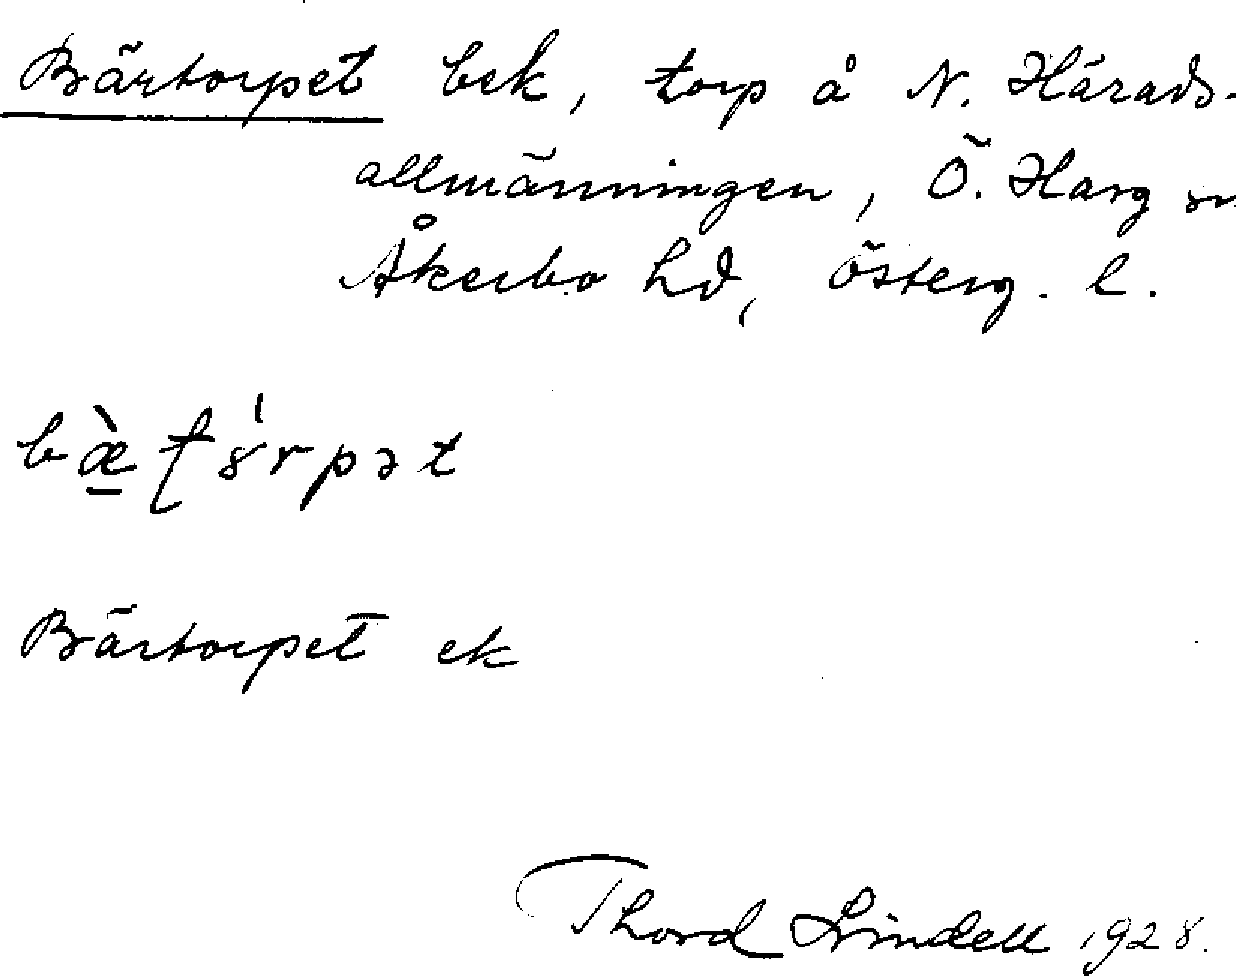 Bärtorpet bek, torp å N. Härads-
allmänningen, Ö. Harg sn
Åkerbo hd, Österg. l.
bæ̀ʈɤ́rpət
Bärtorpet ek
Thord Lindell 1928.